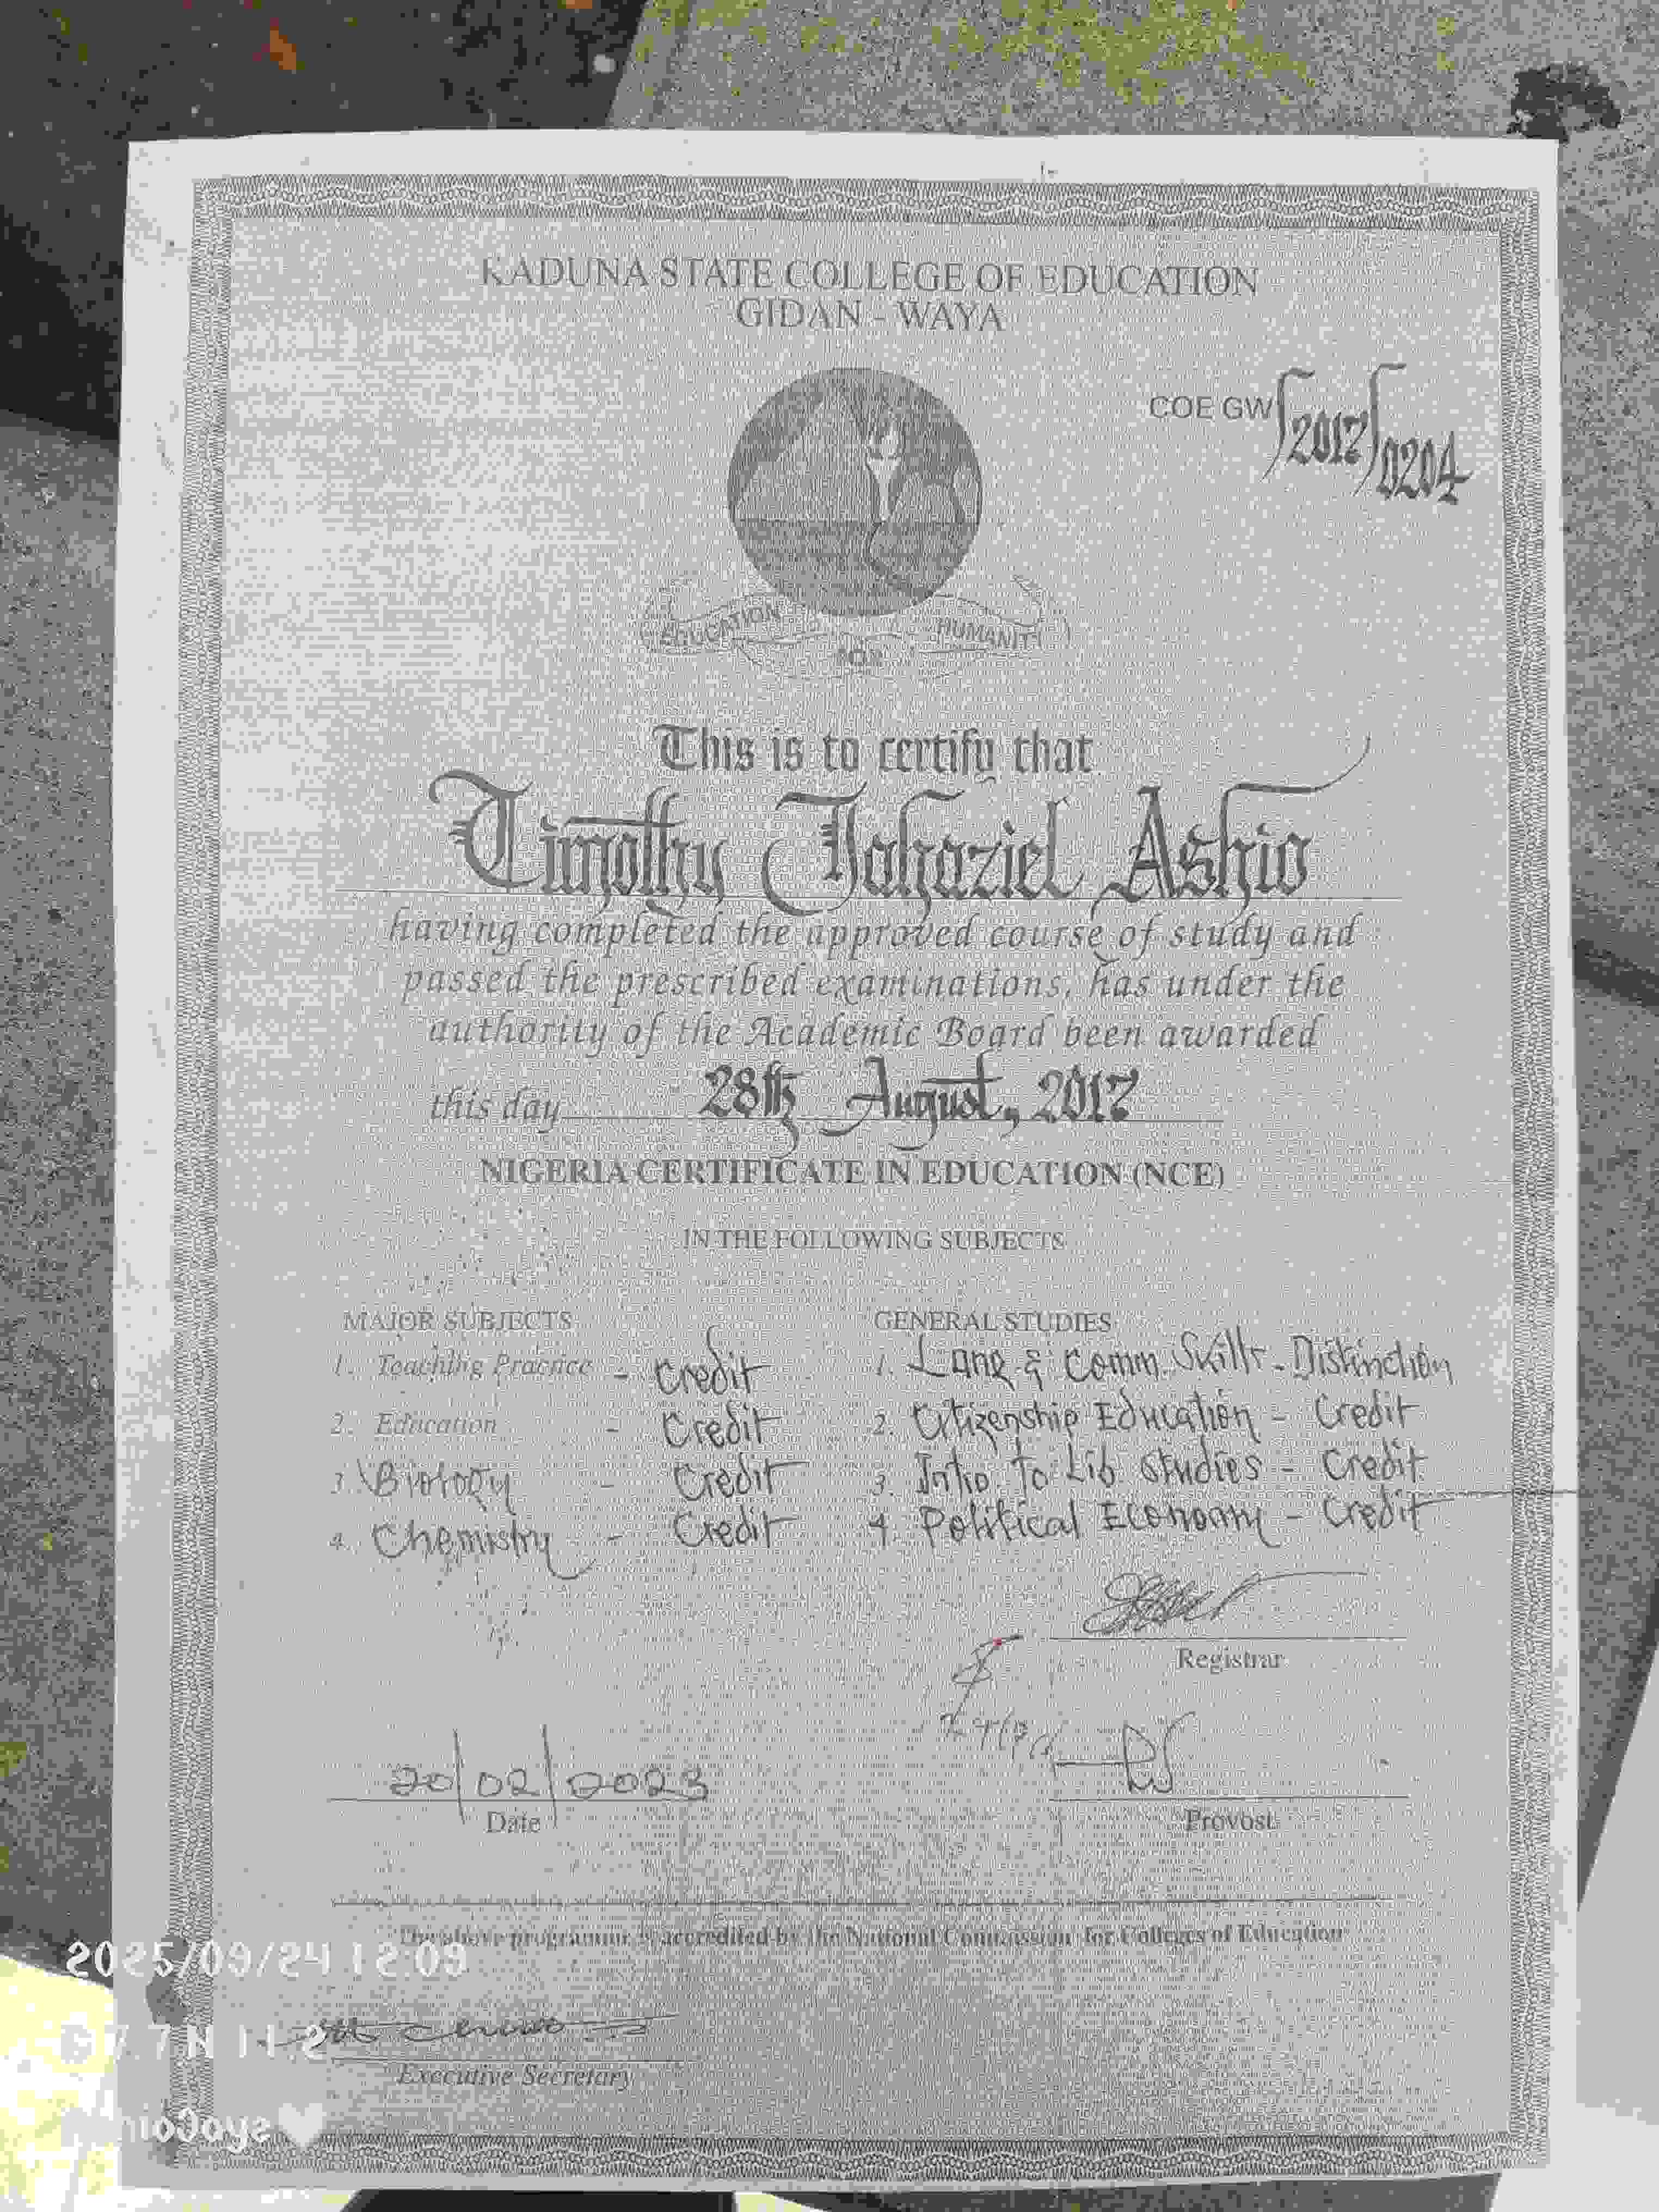 KADUNA STATE COLLEGE OF EDUCATION
GIDAN - WAYA
COE GW/2017/0204
EDUCATION FOR HUMANITY
This is to certify that
Timothy Jahaziel Ashio
having completed the approved course of study and
passed the prescribed examinations, has under the
authority of the Academic Board been awarded
this day 28th August, 2017
NIGERIA CERTIFICATE IN EDUCATION (NCE)
IN THE FOLLOWING SUBJECTS
MAJOR SUBJECTS
1. Teaching Practice - Credit
2. Education - Credit
3. Biology - Credit
4. Chemistry - Credit
GENERAL STUDIES
1. Lang & Comm. Skills - Distinction
2. Citizenship Education - Credit
3. Intro to Lib Studies - Credit
4. Political Economy - Credit
Registrar
20/02/2023
Date
Provost
The above programme is accredited by the National Commission for Colleges of Education
2025/09/24 12:09
Executive Secretary